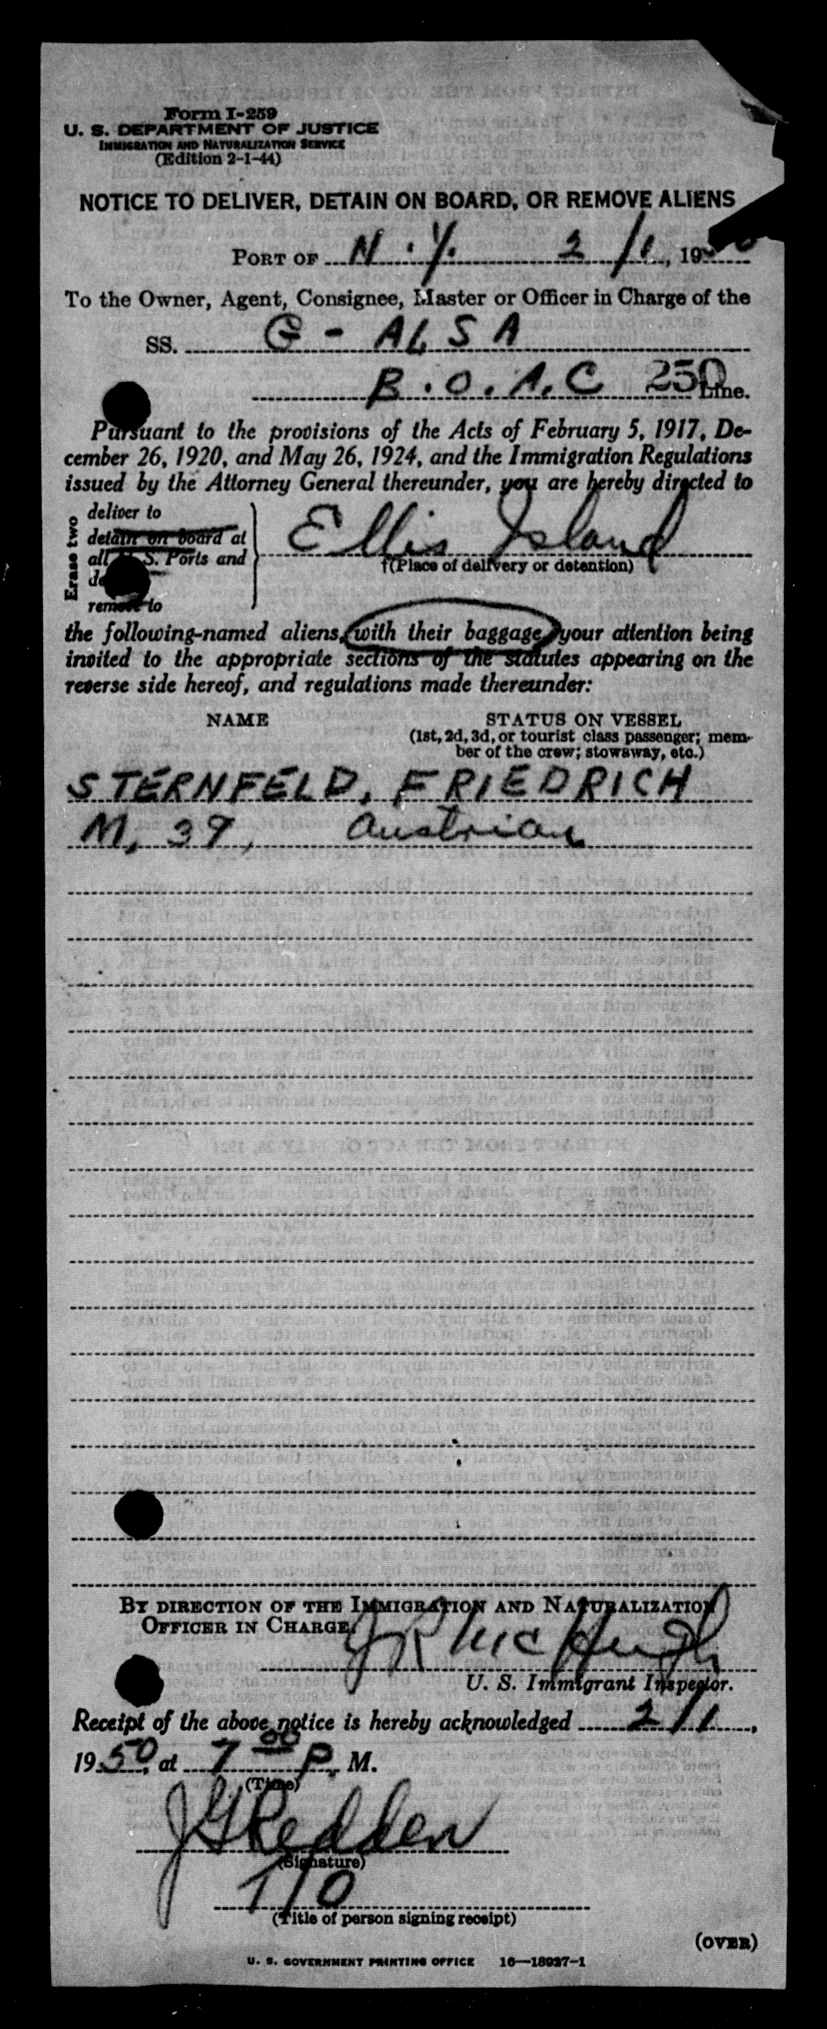 Form I-259
U. S. DEPARTMENT OF JUSTICE
IMMIGRATION AND NATURALIZATION SERVICE
(Edition 2-1-44)
NOTICE TO DELIVER, DETAIN ON BOARD, OR REMOVE ALIENS
PORT OF N. Y. 2/1, 1950
To the Owner, Agent, Consignee, Master or Officer in Charge of the
SS. G - ALSA
B.O.A.C 250 Line.
Pursuant to the provisions of the Acts of February 5, 1917, De-
cember 26, 1920, and May 26, 1924, and the Immigration Regulations
issued by the Attorney General thereunder, you are hereby directed to
Erase two
deliver to
detain on board at
all U. S. Ports and
remove to
Ellis Island
†(Place of delivery or detention)
the following-named aliens, with their baggage, your attention being
invited to the appropriate sections of the statutes appearing on the
reverse side hereof, and regulations made thereunder:
NAME STATUS ON VESSEL
(1st, 2d, 3d, or tourist class passenger; mem-
ber of the crew; stowaway, etc.)
STERNFELD, FRIEDRICH
M, 39, Austrian
BY DIRECTION OF THE IMMIGRATION AND NATURALIZATION
OFFICER IN CHARGE
J R McHugh
U. S. Immigrant Inspector.
Receipt of the above notice is hereby acknowledged 2/1,
1950, at 7 00 P. M.
(Time)
J G Redden
(Signature)
T/O
(Title of person signing receipt)
(OVER)
U. S. GOVERNMENT PRINTING OFFICE 16—18927-1